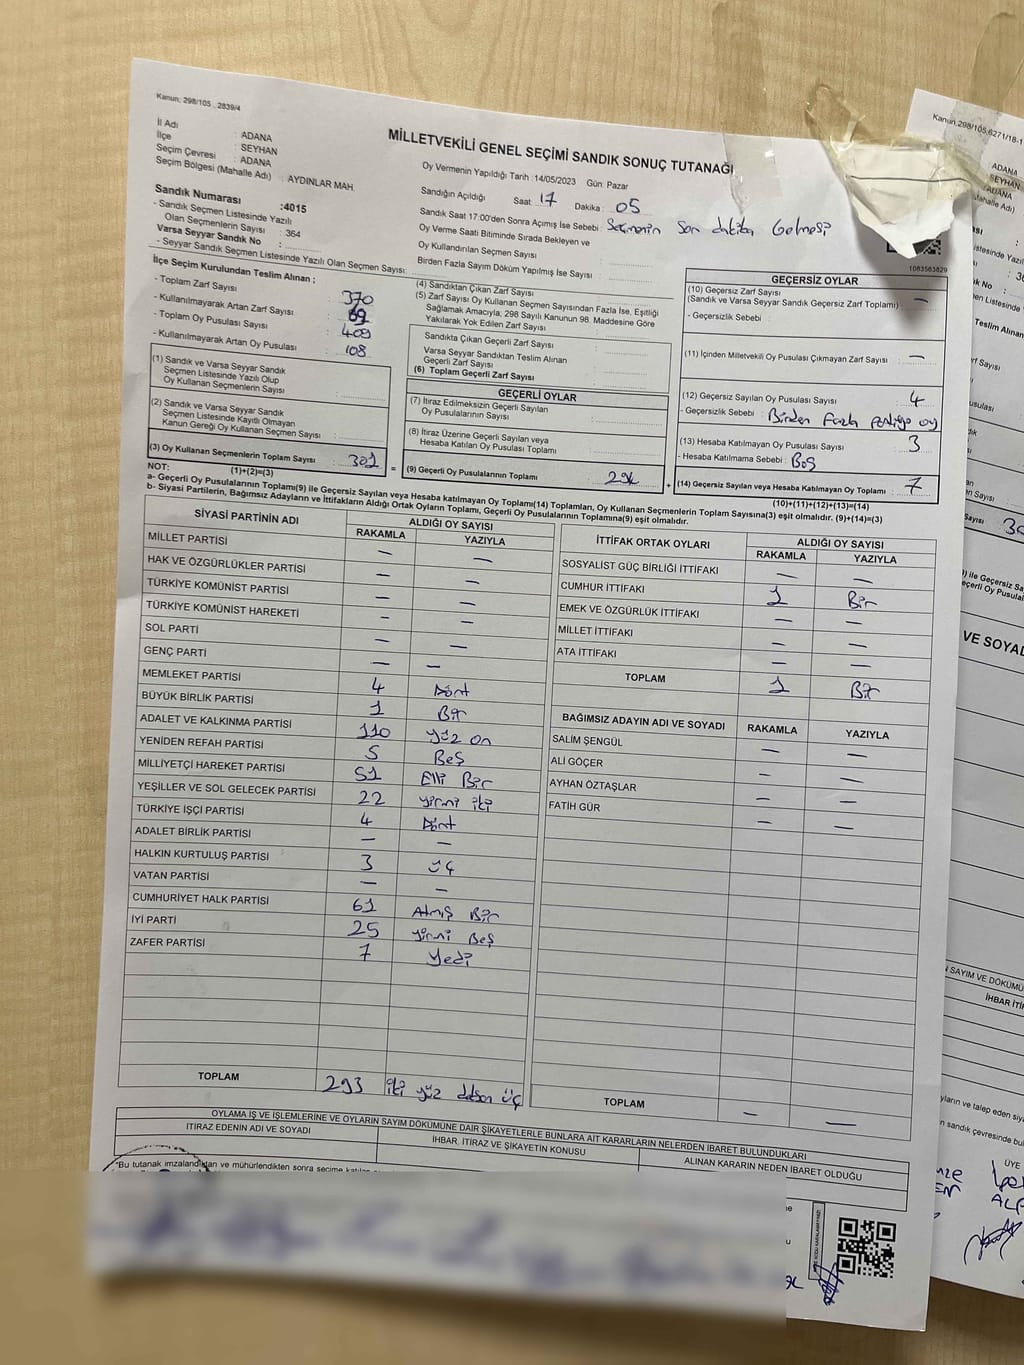 Kanun: 298/105 . 2839/4
MİLLETVEKİLİ GENEL SEÇİMİ SANDIK SONUÇ TUTANAĞI
İl Adı : ADANA
İlçe : SEYHAN
Seçim Çevresi : ADANA
Seçim Bölgesi (Mahalle Adı) : AYDINLAR MAH
Oy Vermenin Yapıldığı Tarih :14/05/2023 Gün: Pazar
Sandığın Açıldığı Saat 17 Dakika : 05
Sandık Saat 17:00'den Sonra Açımış İse Sebebi : Seçmenin son dakika Gelmesi
Oy Verme Saati Bitiminde Sırada Bekleyen ve
Oy Kullandırılan Seçmen Sayısı
Birden Fazla Sayım Döküm Yapılmış İse Sayısı
Sandık Numarası :4015
- Sandık Seçmen Listesinde Yazılı
Olan Seçmenlerin Sayısı : 364
Varsa Seyyar Sandık No :
- Seyyar Sandık Seçmen Listesinde Yazılı Olan Seçmen Sayısı:
İlçe Seçim Kurulundan Teslim Alınan :
- Toplam Zarf Sayısı : 370
- Kullanılmayarak Artan Zarf Sayısı : 69
- Toplam Oy Pusulası Sayısı : 409
- Kullanılmayarak Artan Oy Pusulası : 108
(1) Sandık ve Varsa Seyyar Sandık
Seçmen Listesinde Yazılı Olup
Oy Kullanan Seçmenlerin Sayısı :
(2) Sandık ve Varsa Seyyar Sandık
Seçmen Listesinde Kayıtlı Olmayan
Kanun Gereği Oy Kullanan Seçmen Sayısı :
(3) Oy Kullanan Seçmenlerin Toplam Sayısı : 301 =
(1)+(2)=(3)
(4) Sandıktan Çıkan Zarf Sayısı
(5) Zarf Sayısı Oy Kullanan Seçmen Sayısından Fazla İse, Eşitliği
Sağlamak Amacıyla, 298 Sayılı Kanunun 98. Maddesine Göre
Yakılarak Yok Edilen Zarf Sayısı
Sandıkta Çıkan Geçerli Zarf Sayısı :
Varsa Seyyar Sandıktan Teslim Alınan
Geçerli Zarf Sayısı
(6) Toplam Geçerli Zarf Sayısı
GEÇERLİ OYLAR
(7) İtiraz Edilmeksizin Geçerli Sayılan
Oy Pusulalarının Sayısı :
(8) İtiraz Üzerine Geçerli Sayılan veya
Hesaba Katılan Oy Pusulası Toplamı :
(9) Geçerli Oy Pusulalarının Toplamı : 294 +
1083563829
GEÇERSİZ OYLAR
(10) Geçersiz Zarf Sayısı
(Sandık ve Varsa Seyyar Sandık Geçersiz Zarf Toplamı) : —
- Geçersizlik Sebebi :
(11) İçinden Milletvekili Oy Pusulası Çıkmayan Zarf Sayısı : —
(12) Geçersiz Sayılan Oy Pusulası Sayısı : 4
- Geçersizlik Sebebi : Birden Fazla partiye oy
(13) Hesaba Katılmayan Oy Pusulası Sayısı : 3
- Hesaba Katılmama Sebebi : Boş
(14) Geçersiz Sayılan veya Hesaba Katılmayan Oy Toplamı : 7
(10)+(11)+(12)+(13)=(14)
NOT:
a- Geçerli Oy Pusulalarının Toplamı(9) ile Geçersiz Sayılan veya Hesaba katılmayan Oy Toplamı(14) Toplamları, Oy Kullanan Seçmenlerin Toplam Sayısına(3) eşit olmalıdır. (9)+(14)=(3)
b- Siyasi Partilerin, Bağımsız Adayların ve İttifakların Aldığı Ortak Oyların Toplamı, Geçerli Oy Pusulalarının Toplamına(9) eşit olmalıdır.
SİYASİ PARTİNİN ADI ALDIĞI OY SAYISI
RAKAMLA YAZIYLA
MİLLET PARTİSİ — —
HAK VE ÖZGÜRLÜKLER PARTİSİ — —
TÜRKİYE KOMÜNİST PARTİSİ — —
TÜRKİYE KOMÜNİST HAREKETİ – —
SOL PARTİ — —
GENÇ PARTİ — —
MEMLEKET PARTİSİ 4 Dört
BÜYÜK BİRLİK PARTİSİ 1 Bir
ADALET VE KALKINMA PARTİSİ 110 yüz on
YENİDEN REFAH PARTİSİ 5 Beş
MİLLİYETÇİ HAREKET PARTİSİ 51 Elli Bir
YEŞİLLER VE SOL GELECEK PARTİSİ 22 yirmi iki
TÜRKİYE İŞÇİ PARTİSİ 4 Dört
ADALET BİRLİK PARTİSİ — —
HALKIN KURTULUŞ PARTİSİ 3 üç
VATAN PARTİSİ — —
CUMHURİYET HALK PARTİSİ 61 Atmış Bir
İYİ PARTİ 25 yirmi Beş
ZAFER PARTİSİ 7 yedi
TOPLAM 293 iki yüz doksan üç
İTTİFAK ORTAK OYLARI ALDIĞI OY SAYISI
RAKAMLA YAZIYLA
SOSYALİST GÜÇ BİRLİĞİ İTTİFAKI — —
CUMHUR İTTİFAKI 1 Bir
EMEK VE ÖZGÜRLÜK İTTİFAKI — —
MİLLET İTTİFAKI — —
ATA İTTİFAKI — —
TOPLAM 1 Bir
BAĞIMSIZ ADAYIN ADI VE SOYADI RAKAMLA YAZIYLA
SALİM ŞENGÜL — —
ALİ GÖÇER — —
AYHAN ÖZTAŞLAR — —
FATİH GÜR — —
TOPLAM — —
OYLAMA İŞ VE İŞLEMLERİNE VE OYLARIN SAYIM DÖKÜMÜNE DAİR ŞİKAYETLERLE BUNLARA AİT KARARLARIN NELERDEN İBARET BULUNDUKLARI
İTİRAZ EDENİN ADI VE SOYADI İHBAR, İTİRAZ VE ŞİKAYETİN KONUSU ALINAN KARARIN NEDEN İBARET OLDUĞU
"Bu tutanak imzalandıktan ve mühürlendikten sonra seçime
Kanun.298/105,6271/18-1
ADANA
SEYHAN
ADANA
VE SOYAD
SAYIM VE DÖKÜMÜ
İHBAR İTİ
ÜYE